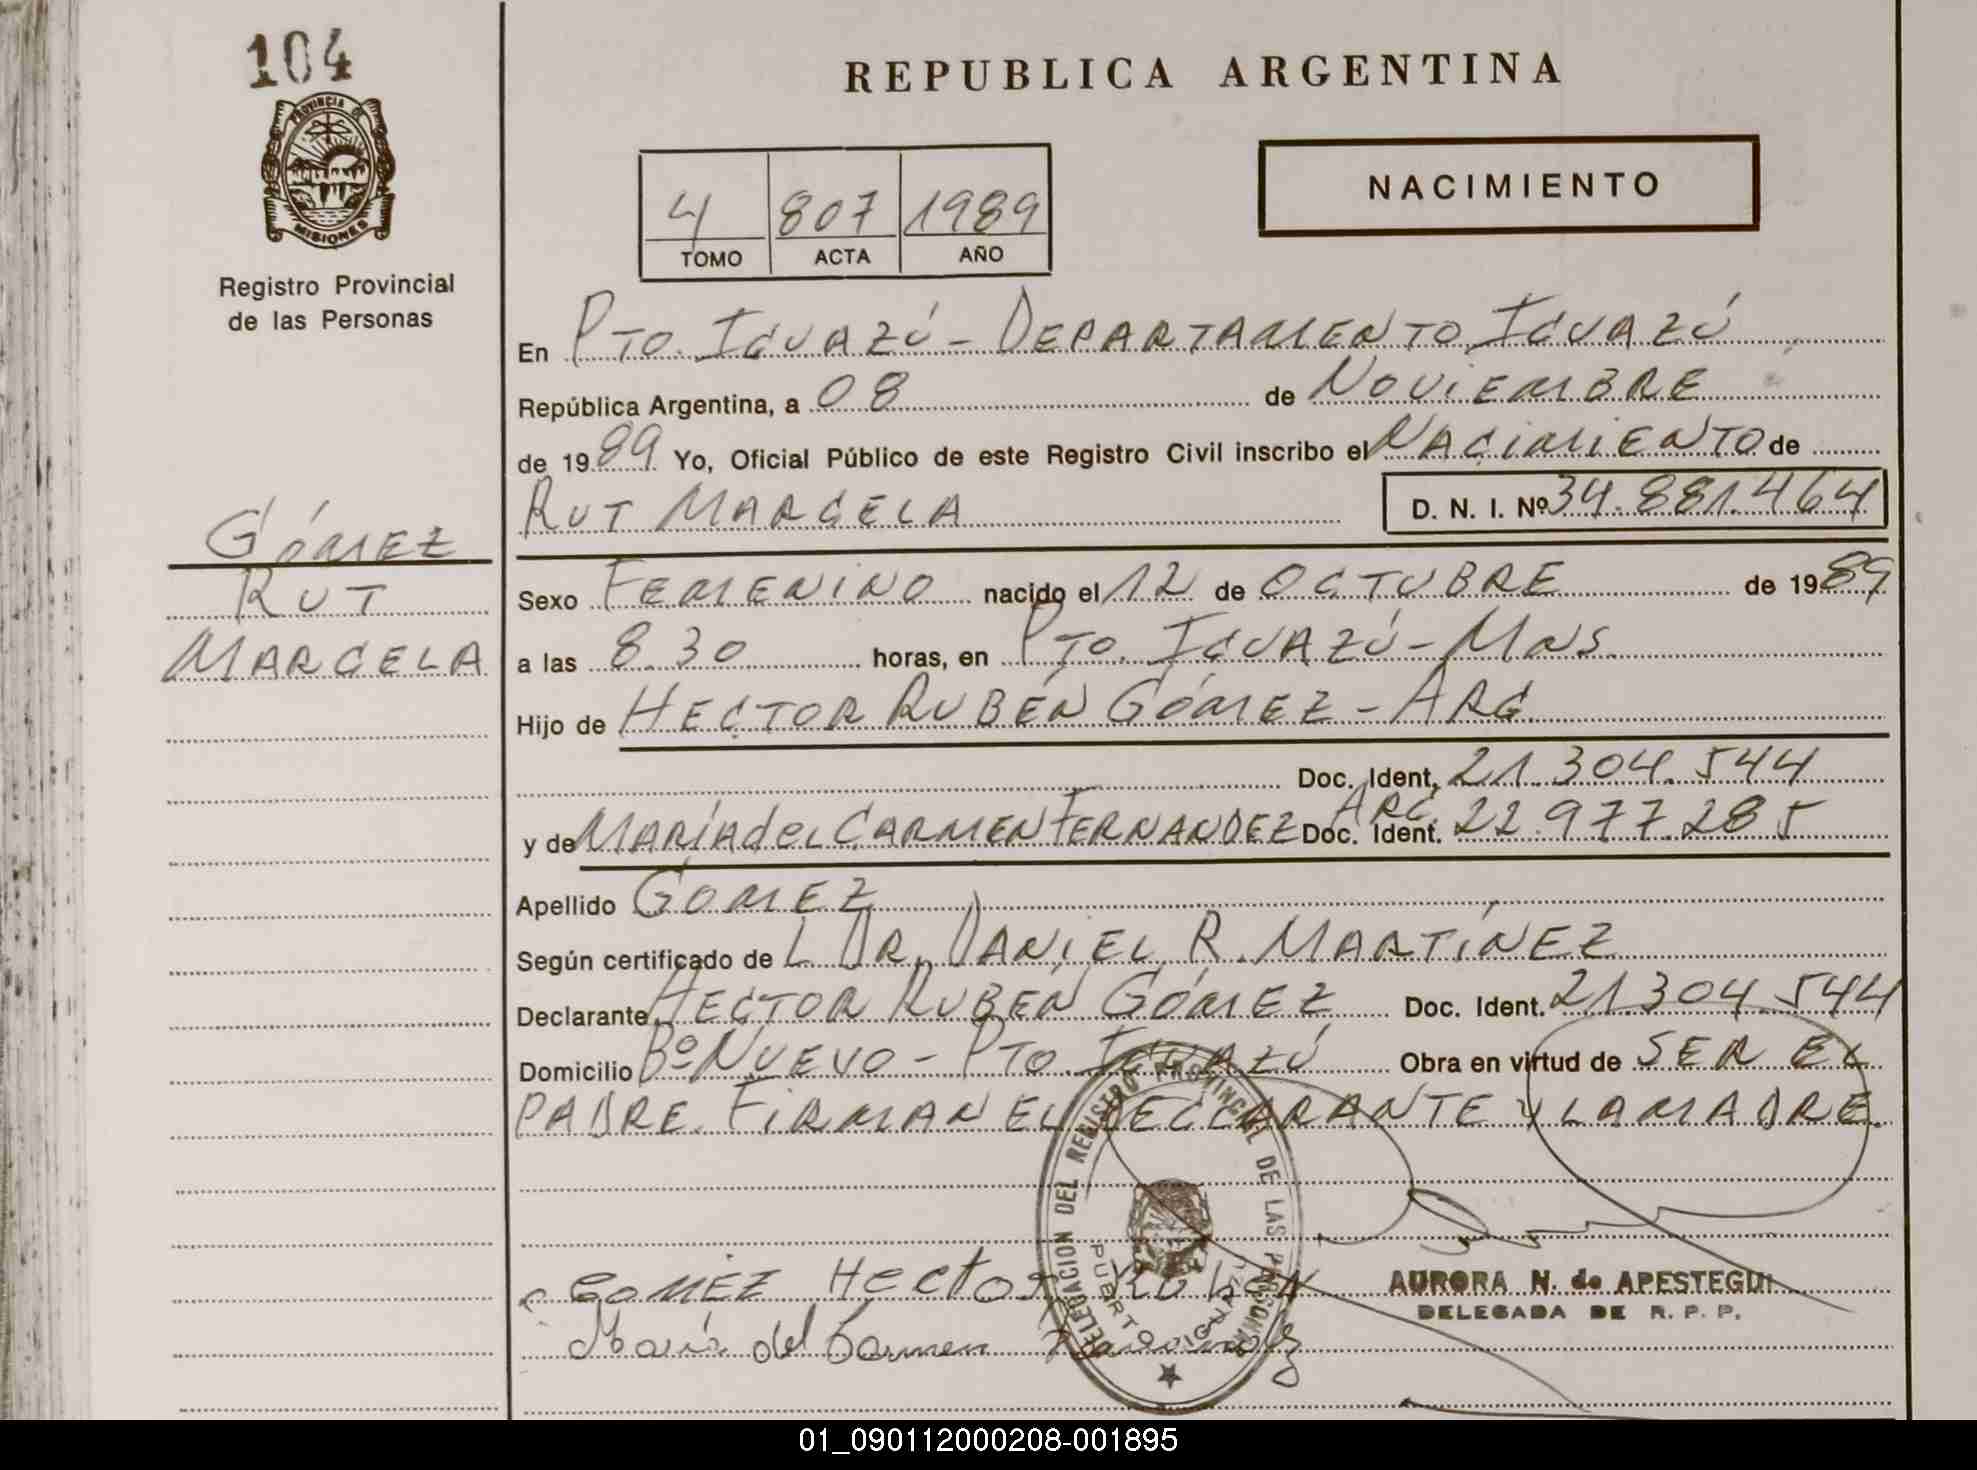 104
PROVINCIA DE
MISIONES
Registro Provincial
de las Personas
GÓMEZ
RUT
MARCELA
REPUBLICA ARGENTINA
4 807 1989
TOMO ACTA AÑO
NACIMIENTO
En PTO. IGUAZÚ - DEPARTAMENTO IGUAZÚ
República Argentina, a 08 de NOVIEMBRE
de 1989 Yo, Oficial Público de este Registro Civil inscribo el NACIMIENTO de
RUT MARCELA D. N. I. Nº 34.881.464
Sexo FEMENINO nacido el 12 de OCTUBRE de 1989
a las 8.30 horas, en PTO. IGUAZÚ - MNS.
Hijo de HECTOR RUBÉN GÓMEZ - ARG
Doc. Ident. 21.304.544
y de MARÍA del CARMEN FERNANDEZ ARG. Doc. Ident. 22.977.285
Apellido GOMEZ
Según certificado de L DR. DANIEL R. MARTÍNEZ
Declarante HECTOR RUBEN GÓMEZ Doc. Ident. 21.304.544
Domicilio Bº NUEVO - PTO IGUAZÚ Obra en virtud de SER EL
PADRE. FIRMAN EL DECLARANTE Y LA MADRE.
DELEGACION DEL REGISTRO PROVINCIAL DE LAS PERSONAS
PUERTO IGUAZU
GOMEZ HectoR RubEN
María del Carmen Fernandez
AURORA N. de APESTEGUI
DELEGADA DE R. P. P.
01_090112000208-001895